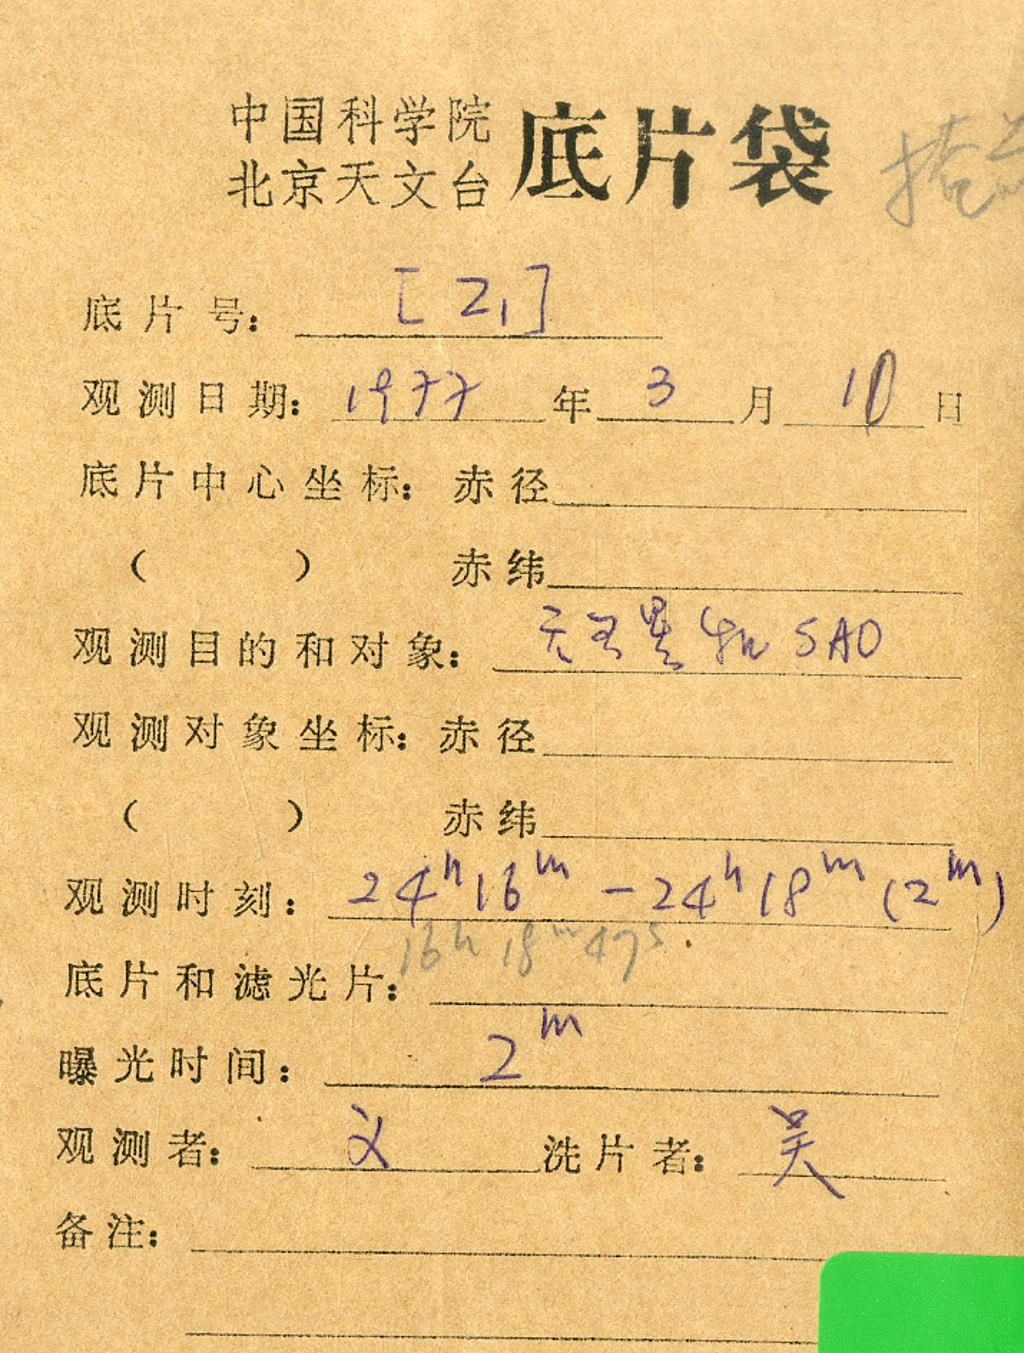 中国科学院
北京天文台 底片袋 掩
底片号: [Z1]
观测日期: 1977年3月10日
底片中心坐标: 赤径
( ) 赤纬
观测目的和对象: 天王星掩SAO
观测对象坐标: 赤径
( ) 赤纬
观测时刻: 24h16m-24h18m(2m)
16h18m47s
底片和滤光片:
曝光时间: 2m
观测者: 洗片者: 吴
备注: